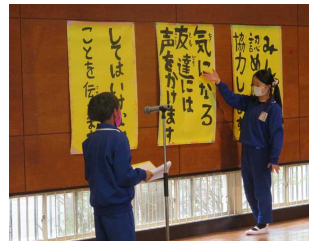 みん
認め
協力し
気になる
友達には
声をかけます
してはいけ
ことを伝